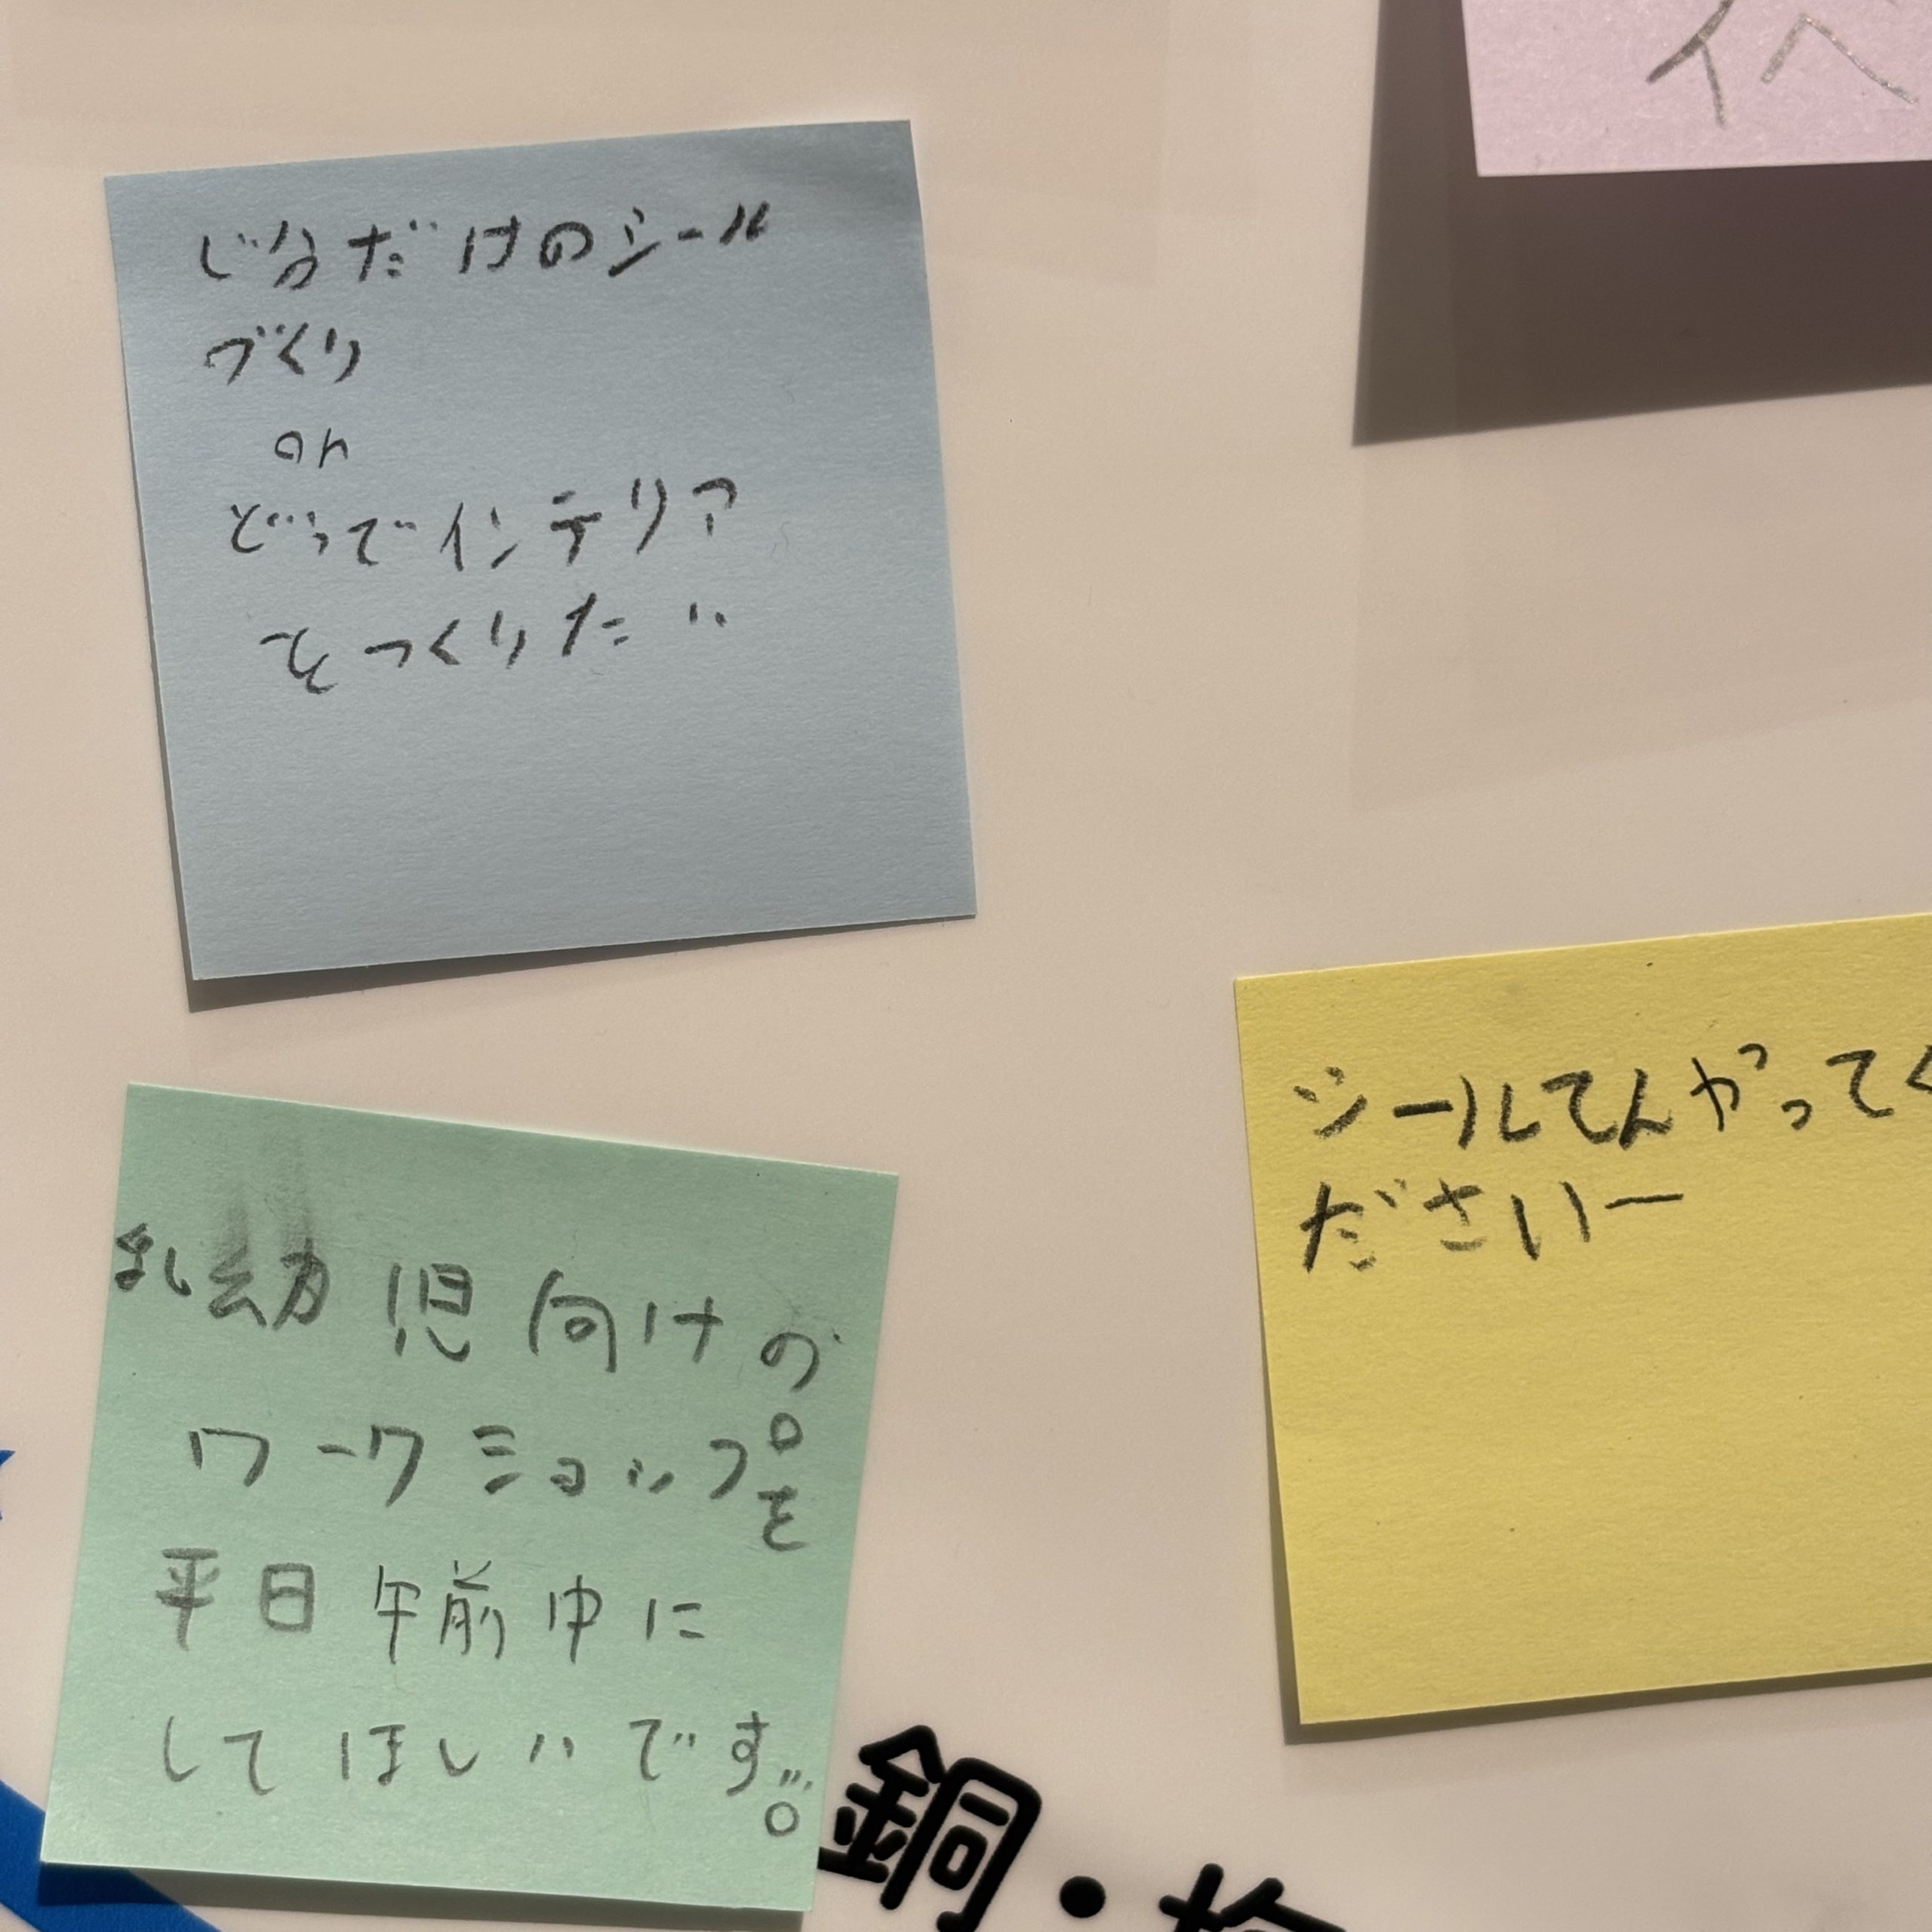 じ分だけのシール
づくり
or
どってインテリア
をつくりたい
イベ
シールてんやってく
ださいー
乳幼児向けの
ワークショップを
平日午前中に
してほしいです。
銅・